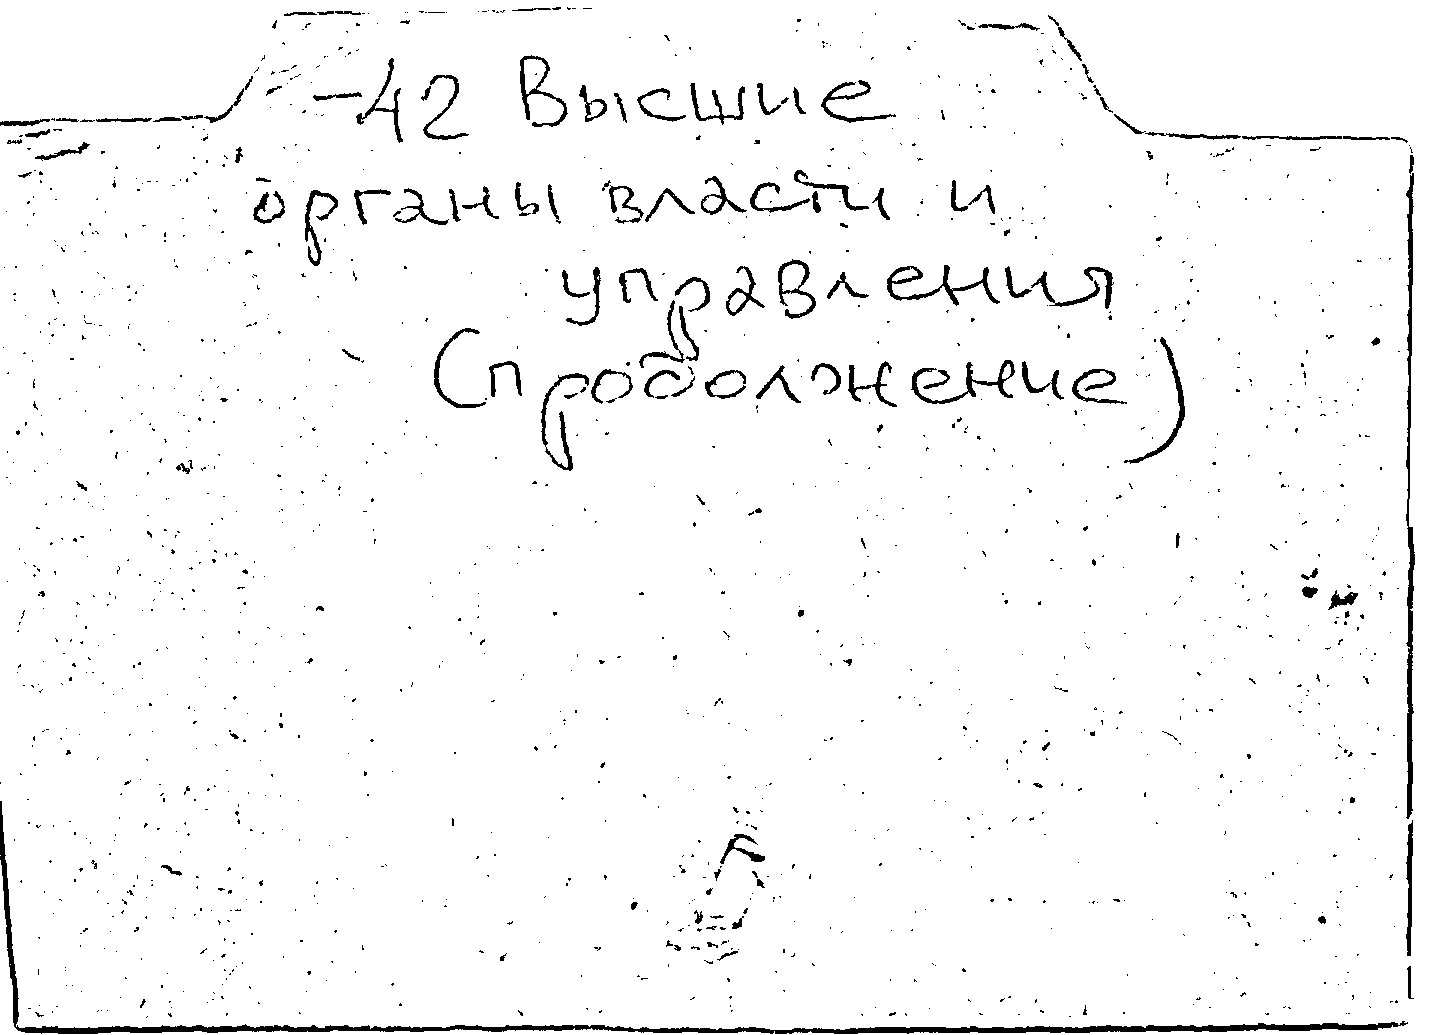 -42 Высшие
органы власти и
управления
(продолжение)